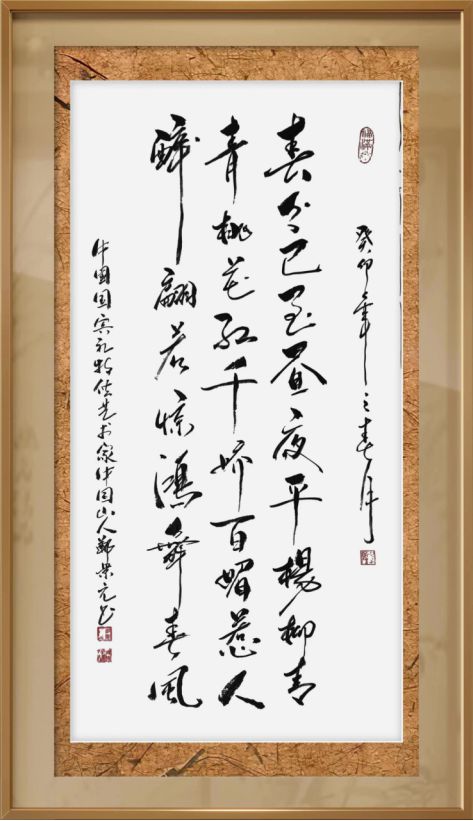 癸卯年之春月
春分已至昼夜平楊柳青
青桃花红千娇百媚惹人
醉翩若惊鸿舞春风
中国国宾礼特供艺术家中国山人鄭荣元书